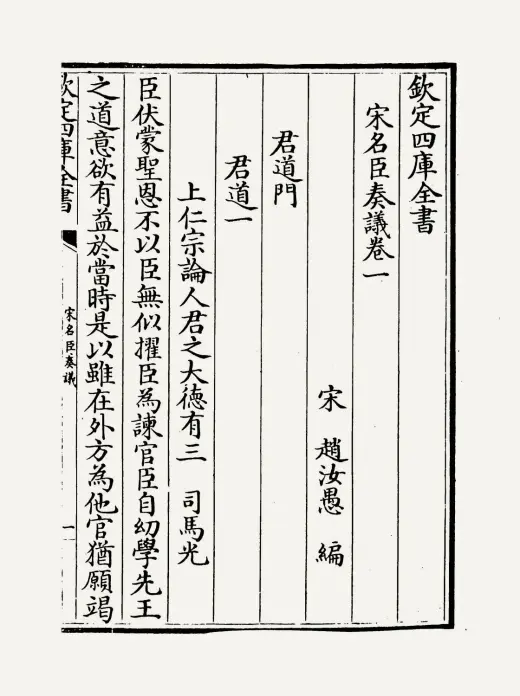 欽定四庫全書
宋名臣奏議卷一
宋 趙汝愚 編
君道門
君道一
上仁宗論人君之大德有三 司馬光
臣伏蒙聖恩不以臣無似擢臣為諫官臣自幼學先王
之道意欲有益於當時是以雖在外方為他官猶願竭
欽定四庫全書
宋名臣奏議
一